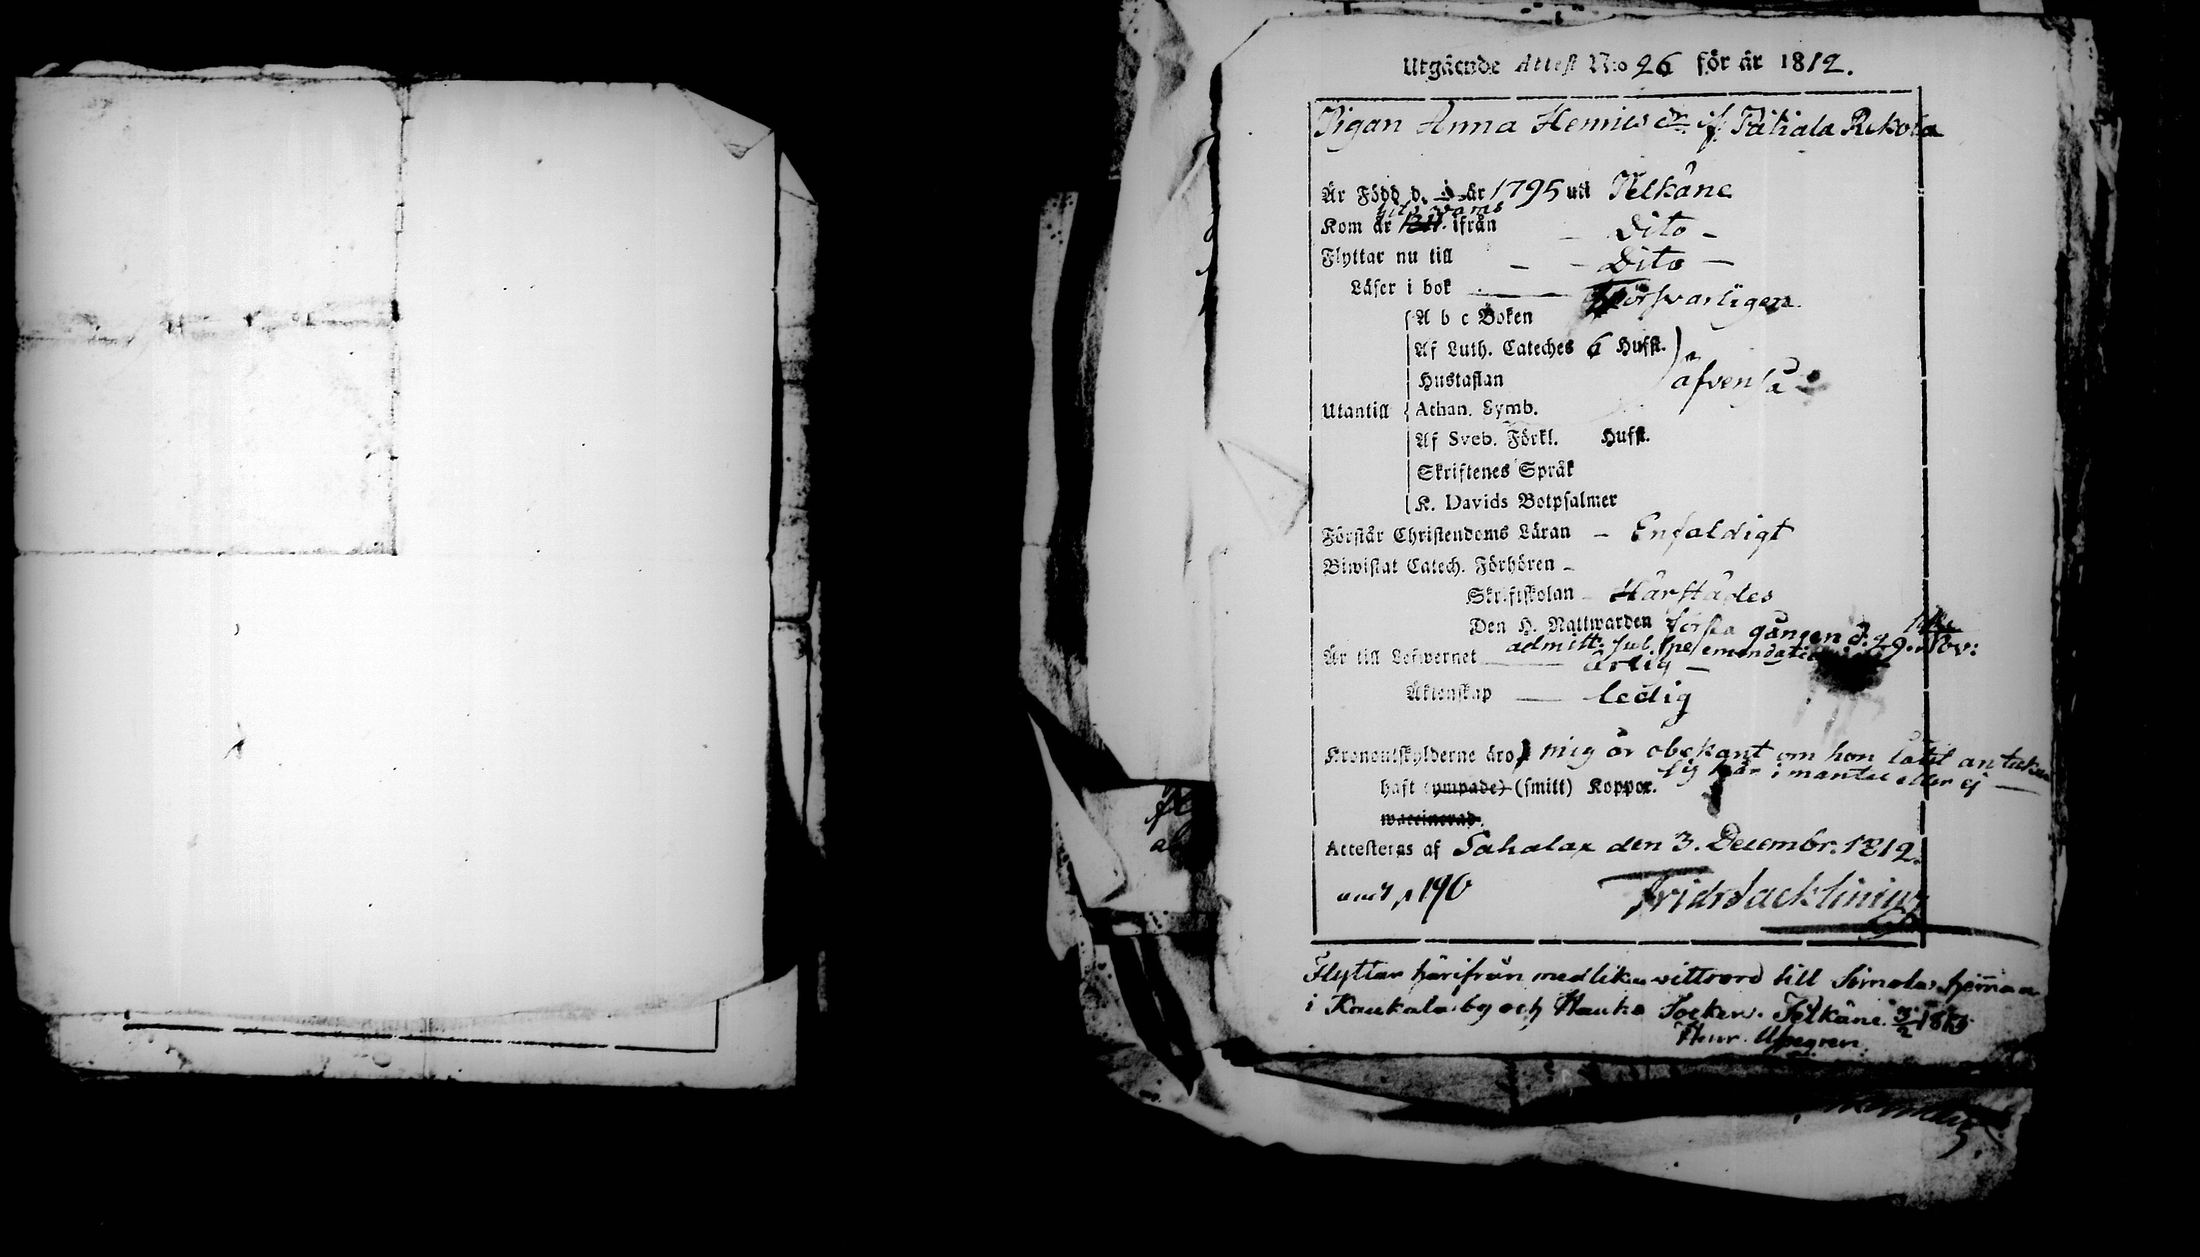 Utgående Attest N:o 26 för år 1812.
Pigan Anna Henricsdr. if. Pätiala Rekola
Är Född d. år 1795 uti Pelkäne
Kom år ifrån — Dito —
Flyttar nu till — — Dito —
Läser i bok — Försvarligen
A b c Boken
Af Luth. Cateches 6 Hufst.
Hustaflan
äfven så
Utantill Athan. Symb.
Af Sveb. Förkl. Hufst.
Skriftenes Språk
K. Davids Botpsalmer
Förstår Christendoms Läran — Enfaldigt
Biwistat Catech. Förhören —
Skriftskolan — Härstädes
Den H. Nattwarden första gången d. 29. Nov:
admitt. sub. spe emendationis
Är till Lefwernet — ärlig —
Äktenskap — ledig
Kronoutskylderne äro mig är obekant om hon låtit anteckna
sig här i mantal eller ej —
haft (ympade) (smitt) Koppor.
waccinerad.
Attesteras af Sahalax den 3. Decembr. 1812.
Fridr Jacklinius
Flyttar härifrån med lika vittsord till Simola hemman
i Kaukala by och Hauho Socken. Pelkäne
Henr.